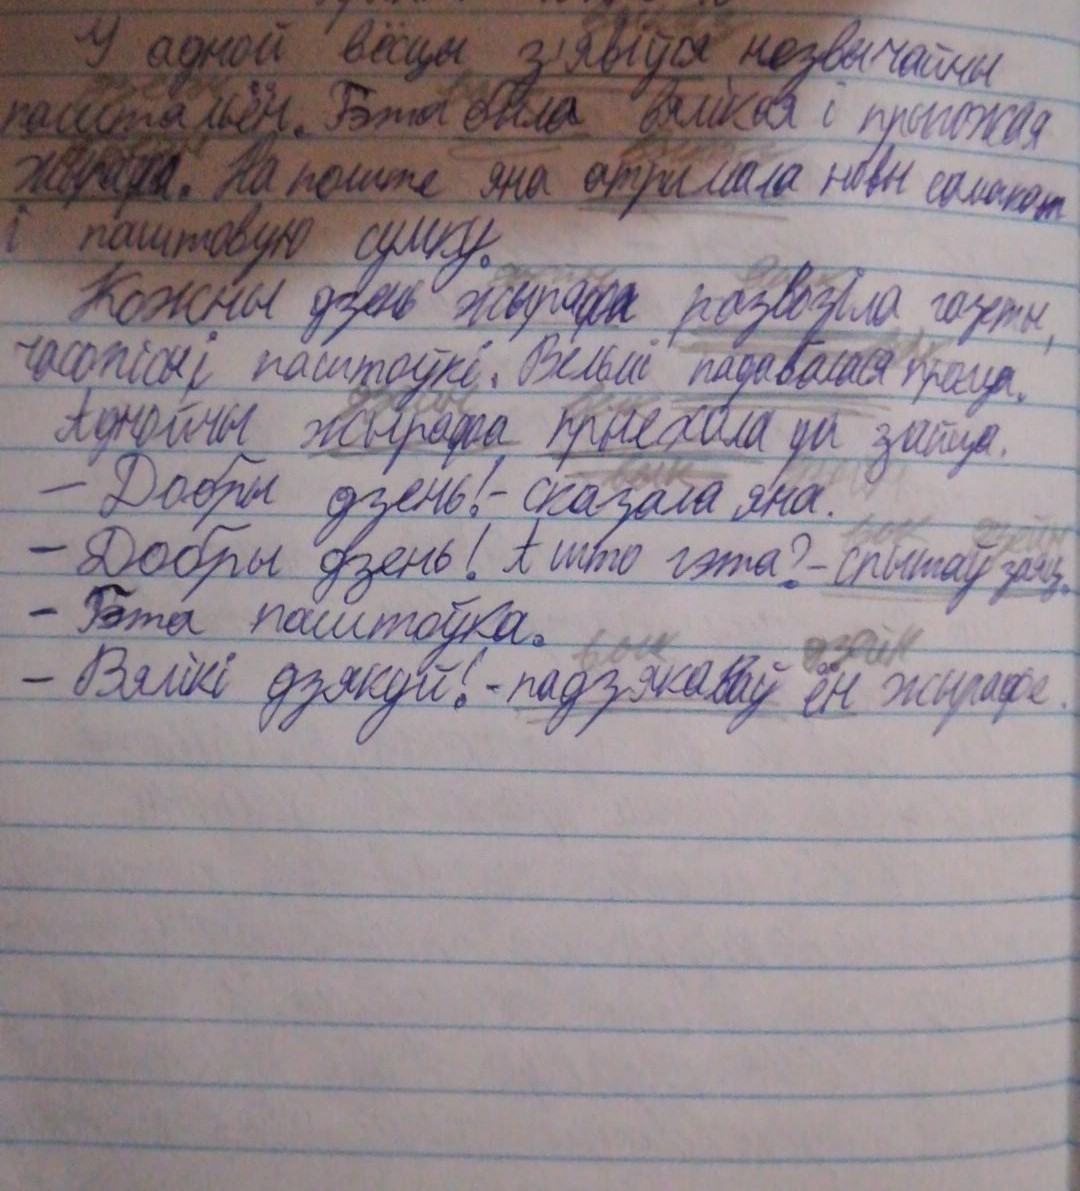 У адной вёсцы з'явіўся незвычайны
паштальён. Гэта была вялікая і прыгожая
жырафа. На пошце яна атрымала новы самакат
і паштовую сумку.
Кожны дзень жырафа развозіла газеты,
часопісы і паштоўкі. Вельмі падабалася праца.
Аднойчы жырафа прыехала да зайца.
– Добры дзень! - сказала яна.
вык дзейн
– Добры дзень! А што гэта? - спытаў заяц.
– Гэта паштоўка.
вык дзейн
– Вялікі дзякуй! - падзякаваў ён жырафе.